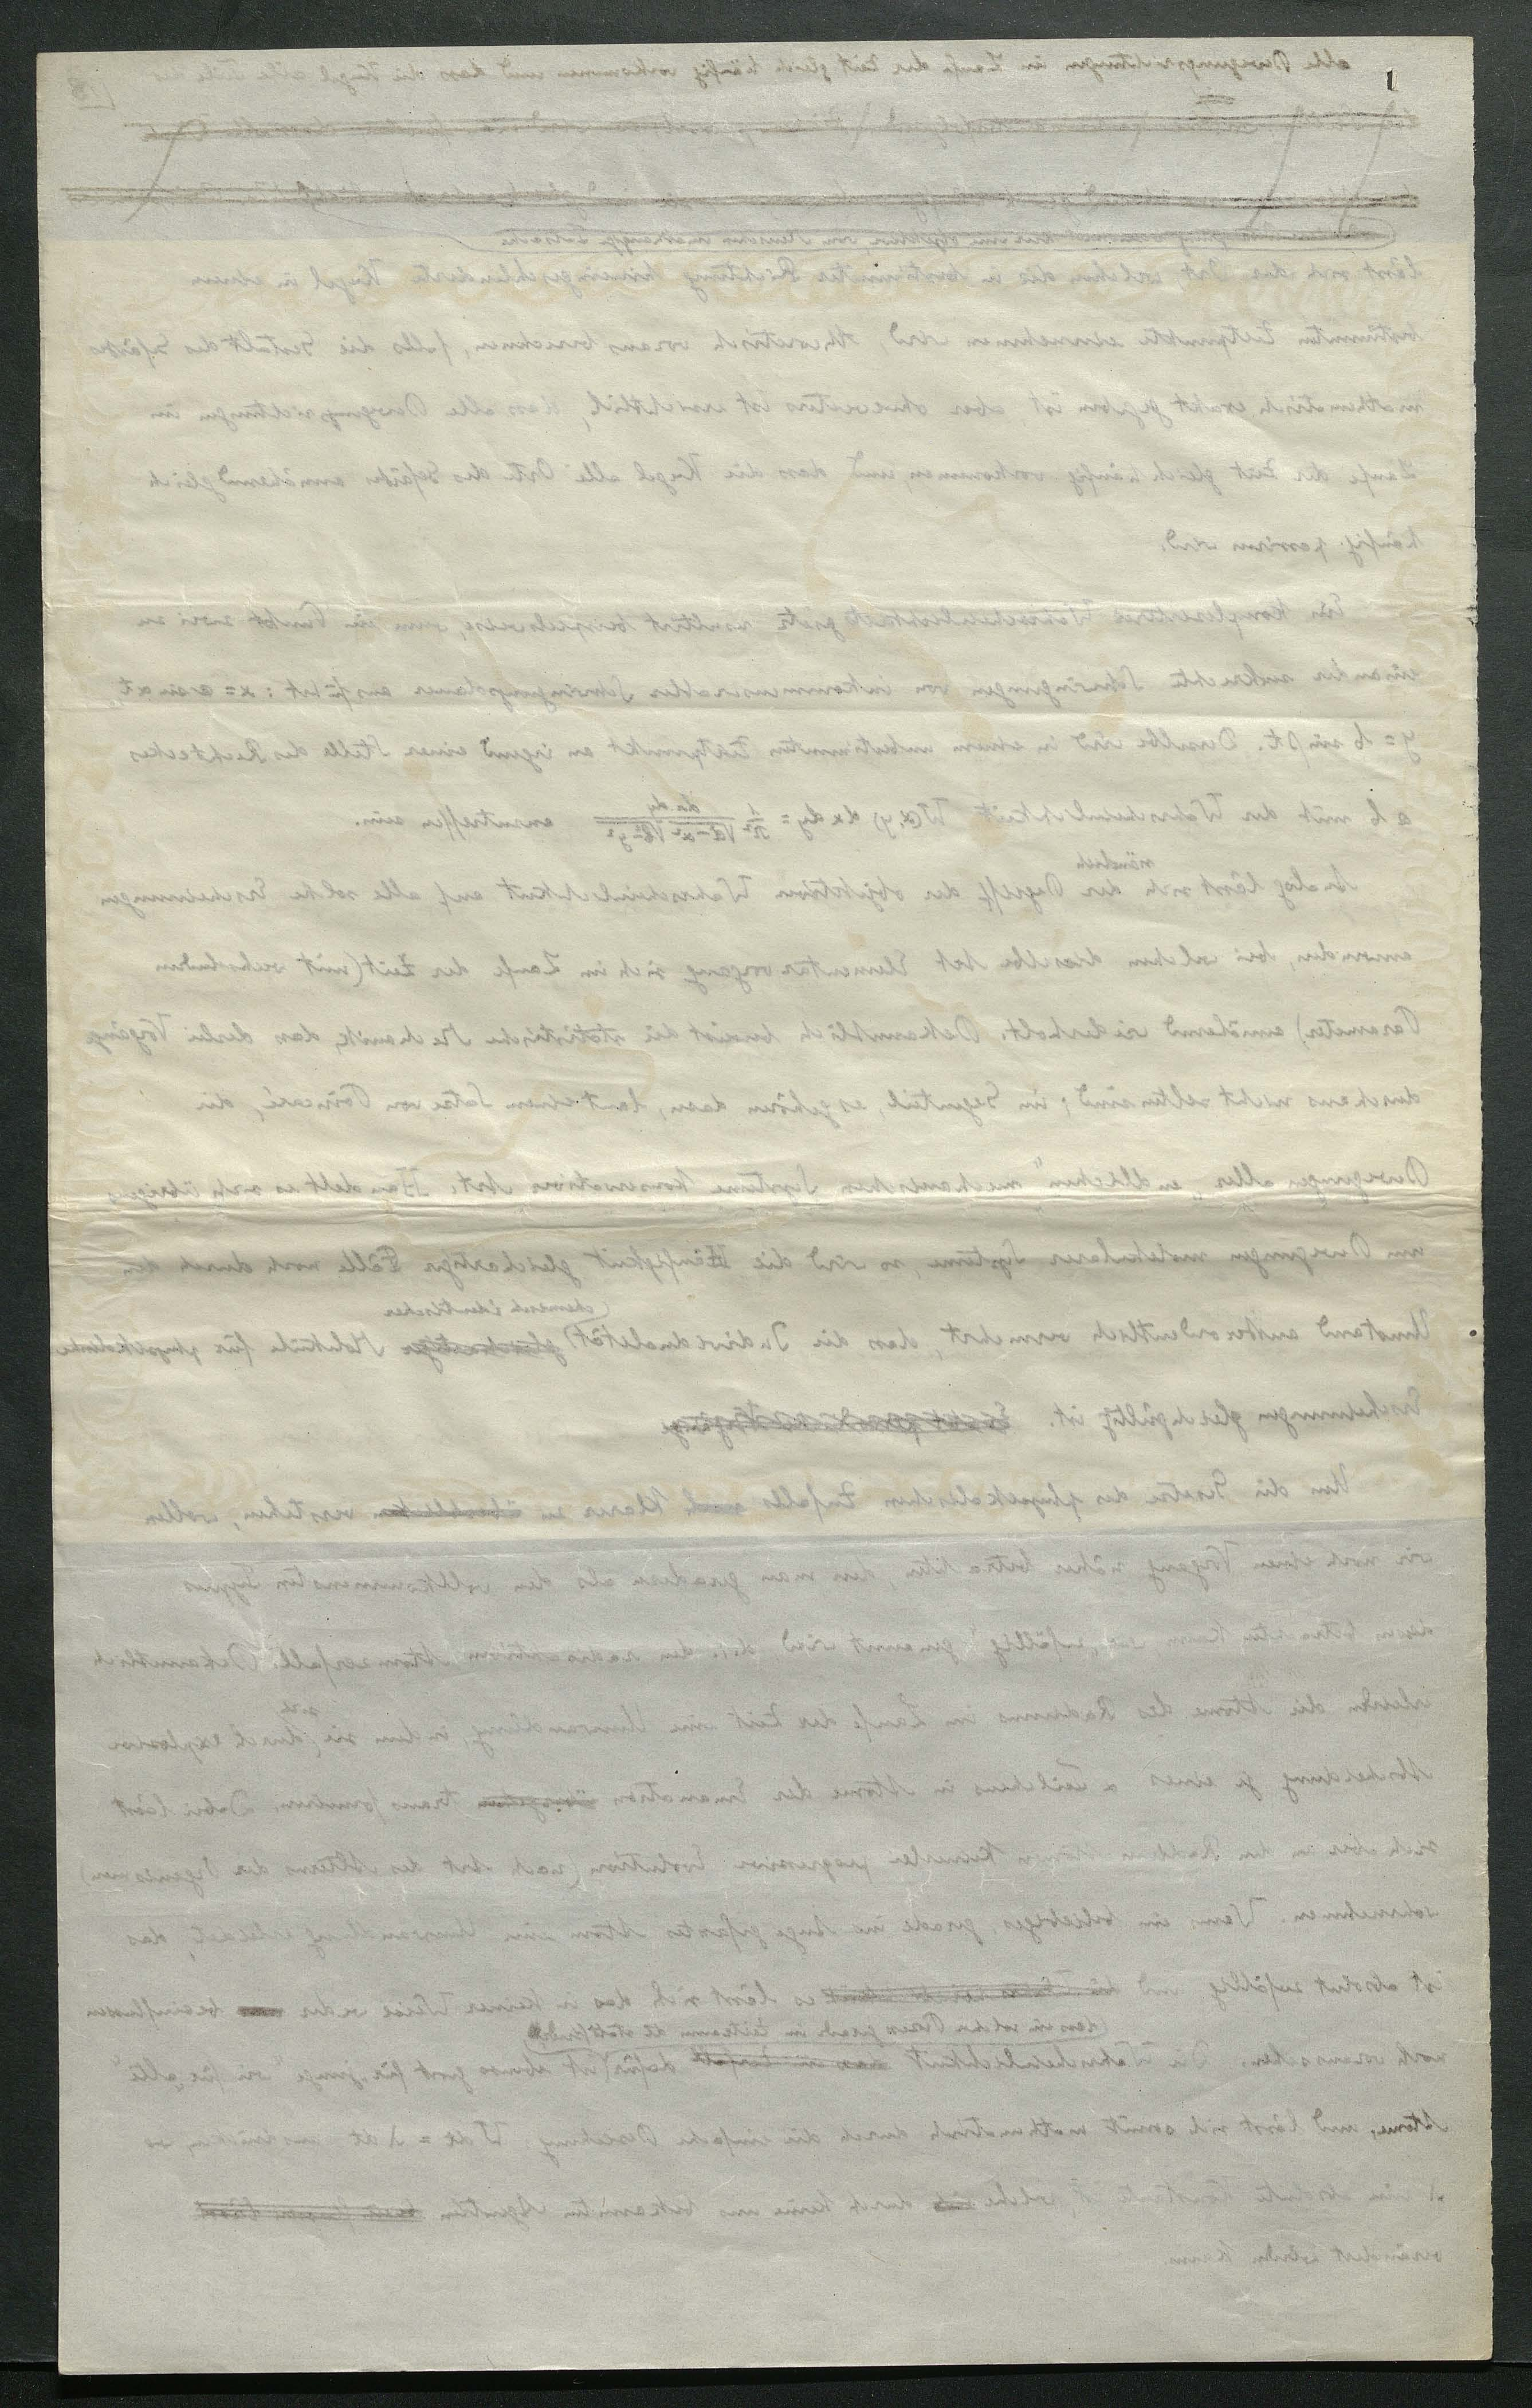 alle Bewegungsrichtungen im Laufe der Zeit gleich häufig vorkommen und dass die Kugel alle
18
lässt sich der Ort, welchen die in bestimmter Richtung hineingeschleuderte Kugel in einem
bestimmten Zeitpunkte einnehmen wird, theoretisch voraus berechnen, falls die Gestalt des Gefässes
mathematisch exakt gegeben ist, aber ohneweiters ist ersichtlich, dass alle Bewegungsrichtungen im
Laufe der Zeit gleich häufig vorkommen und dass die Kugel alle Orte des Gefässes annähernd gleich
häufig passiren wird.
Ein komplizierteres Wahrscheinlichkeitsgesetz resultirt beispielsweise, wenn ein Punkt zwei zu
einander senkrechte Schwingungen von inkommensurabler Schwingungsdauer ausführt: x = a sin αt,
y = b sin βt. Derselbe wird in einem unbestimmten Zeitpunkt an irgend einer Stelle des Rechteckes
a b mit der Wahrscheinlichkeit W(x,y) dx dy = 1/π² dx dy / √a²-x² √b²-y² anzutreffen sein.
nämlich
Analog lässt sich der Begriff der objektiven Wahrscheinlichkeit auf alle solche Erscheinungen
anwenden, bei welchen dieselbe Art Elementarvorgang sich im Laufe der Zeit (mit wechselnden
Parametern) annähernd wiederholt. Bekanntlich beweist die statistische Mechanik, dass derlei Vorgänge
durchaus nicht selten sind; im Gegenteil, es gehören dazu, laut einem Satze von Poincaré, die
Bewegungen aller „endlichen" mechanischen Systeme konservativer Art. Handelt es sich übrigens
um Bewegungen molekularer Systeme, so wird die Häufigkeit gleichartiger Fälle noch durch den
chemisch identischer
Umstand ausserordentlich vermehrt, dass die Individualität gleichartiger Moleküle für physikalische
Erscheinungen gleichgültig ist.
Um die Gesetze des physikalischen Zufalles noch klarer zu verstehen, wollen
wir noch einen Vorgang näher betrachten, den man geradezu als den vollkommensten Typus
dessen betrachten kann, was „zufällig" genannt wird, d.i. den radioaktiven Atomzerfall. Bekanntlich
erleiden die Atome des Radiums im Laufe der Zeit eine Umwandlung, indem sie
sich
durch explosive
Abscheidung je eines α Teilchens in Atome der Emanation transformiren. Dabei lässt
sich aber an den Radium Atomen keinerlei progressive Evolution (nach Art des Alterns der Organismen)
wahrnehmen. Wenn ein beliebiges, gerade ins Auge gefasstes Atom eine Umwandlung erleidet, das
ist absolut zufällig und es lässt sich das in keiner Weise weder beeinflussen
dass ein solcher Prozess gerade im Zeitraume dt stattfindet
noch voraussehen. Die Wahrscheinlichkeit dafür ist ebenso gross für „junge" wie für „alte"
Atome, und lässt sich somit mathematisch durch die einfache Beziehung W dt = λ dt ausdrücken, wo
λ eine absolute Konstante ist, welche durch keine uns bekannten Agentien
verändert werden kann.